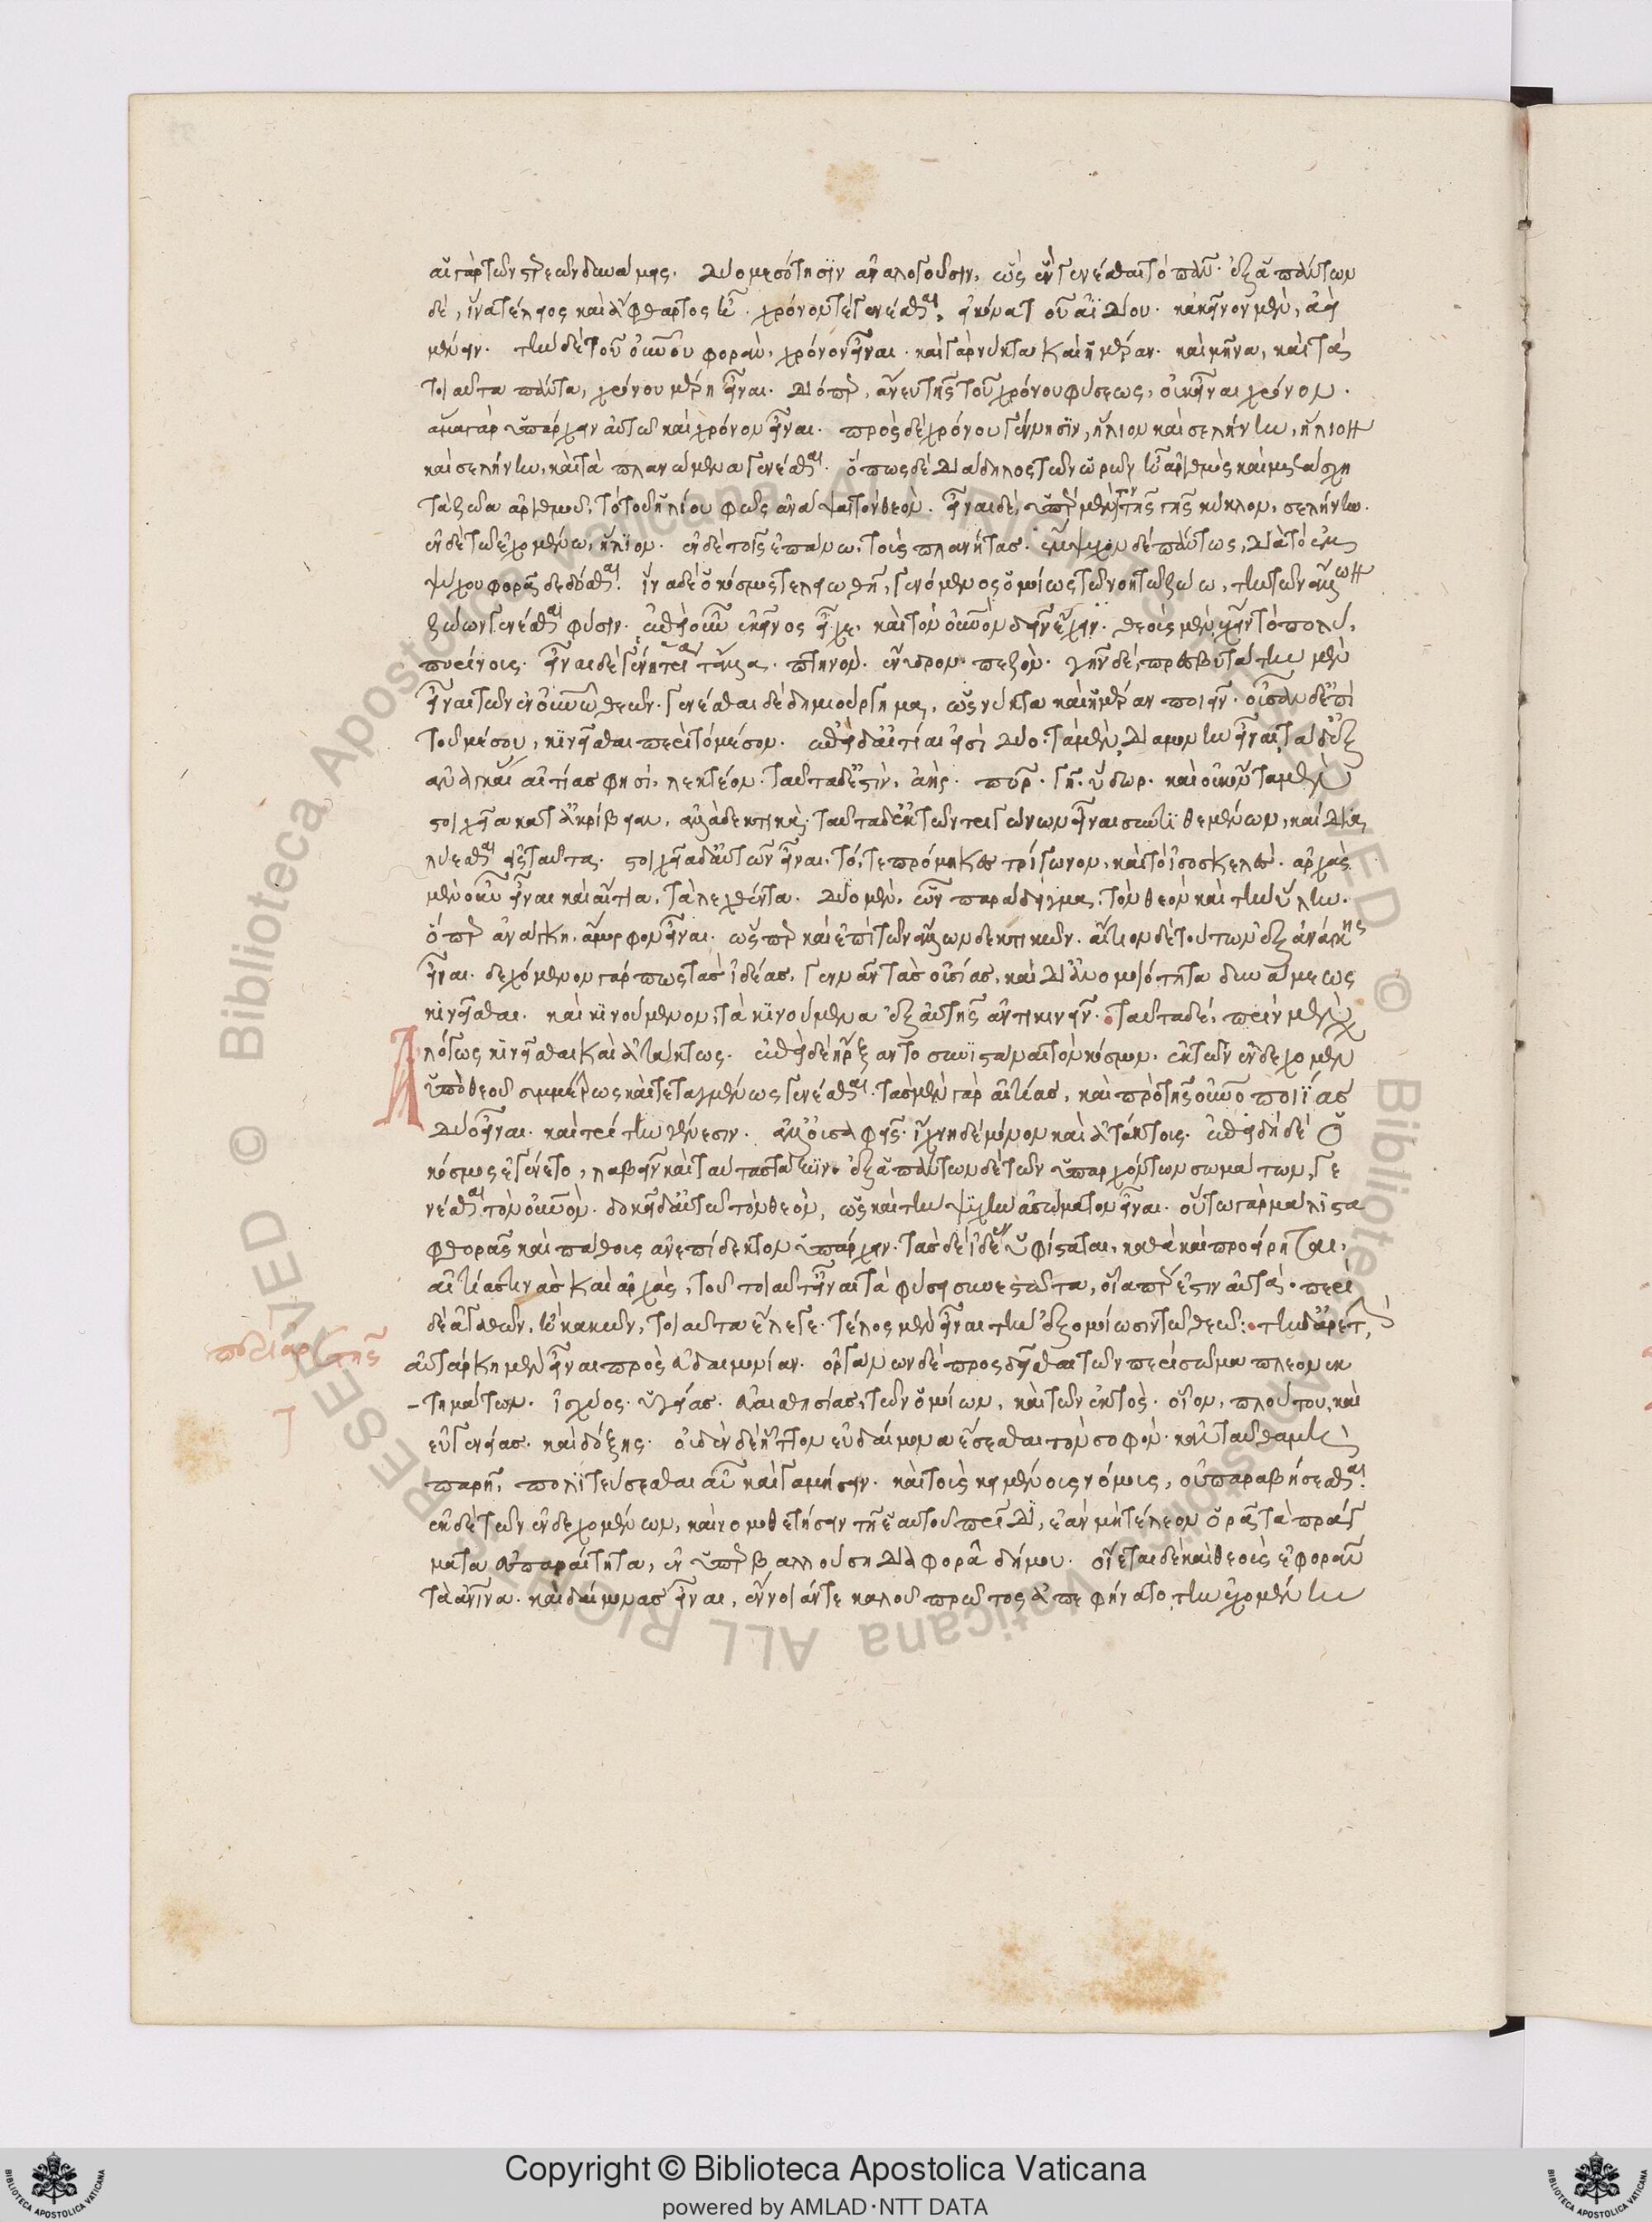 αἱ γὰρ τῶν στερεῶν δυνάμεις. δύο μεσότησιν ἀναλογοῦσιν. ὡς ἓν γενέσθαι τὸ πᾶν. ἐξ ἁπάντων
δὲ, ἵνα τέλειος καὶ ἄφθαρτος ᾖ. χρόνον τε γενέσθαι, εἰκόνα τοῦ ἀϊδίου. κἀκεῖνον μὲν, ἀεὶ
μένειν. τὴν δὲ τοῦ οὐρανοῦ φορὰν, χρόνον εἶναι. καὶ γὰρ νύκτα καὶ ἡμέραν. καὶ μῆνα, καὶ τὰ
τοιαῦτα πάντα, χρόνου μέρη εἶναι. διόπερ, ἄνευ τῆς τοῦ χρόνου φύσεως, οὐκ εἶναι χρόνον.
ἅμα γὰρ ὑπάρχειν αὐτῷ καὶ χρόνον εἶναι. πρὸς δὲ χρόνου γέννησιν, ἥλιον καὶ σελήνην, ἥλιον
καὶ σελήνην, καὶ τὰ πλανώμενα γενέσθαι. ὅπως δὲ διάδηλος τῶν ὡρῶν ᾖ ἀριθμὸς καὶ μετάσχῃ
τὰ ζῶα ἀριθμοῦ, τὸ τοῦ ἡλίου φῶς ἀνάψαι τὸν θεόν. εἶναι δὲ, ὑπὲρ μὲν τὸν τῆς γῆς κύκλον, σελήνην.
ἐν δὲ τῷ ἐχομένῳ, ἥλιον. ἐν δὲ τοῖς ἐπάνω, τοὺς πλανήτας. ἔμψυχον δὲ πάντως, διὰ τὸ ἐμ
ψύχου φορᾶς δεδέσθαι. ἵνα δὲ ὁ κόσμος τελειωθῇ, γενόμενος ὁμοίως τῷ νοητῷ ζώω, τὴν τῶν ἄλλων
ζώων γενέσθαι φύσιν. ἐπεὶ οὖν ἐκεῖνος εἶχε, καὶ τὸν οὐρανὸν δεῖν ἔχειν. θεοὺς μὲν ἔχειν τὸ πολὺ,
πυρίνους. εἶναι δὲ γένη τρία τἄλλα. πτηνὸν. ἔνυδρον. πεζὸν. γῆν δὲ, πρεσβυτάτην μὲν
εἶναι τῶν ἐν οὐρανῷ θεῶν. γενέσθαι δὲ δημιούργημα, ὡς νύκτα καὶ ἡμέραν ποιεῖν. οὖσαν δ' ἐπὶ
τοῦ μέσου, κινεῖσθαι περὶ τὸ μέσον. ἐπεὶ δ' αἰτίαι εἰσὶ δύο. τὰ μὲν, διὰ μονὴν εἶναι, τὰ δ' ἐξ
ἀναγκαί αἰτίας φησὶ, λεκτέον. ταῦτα δ' ἐστὶν, ἀὴρ. πῦρ. γῆ. ὕδωρ. καὶ οὐκ οὖν τὰ μὲν
στοιχεῖα κατ' ἀκρίβειαν, ἀλλὰ δεκτικά. ταῦτα δ' ἐκ τῶν τριγώνων εἶναι συντιθεμένων, καὶ δια
λύεσθαι εἰς ταῦτα. στοιχεῖα δ' αὐτῶν εἶναι, τό, τε πρόμηκες τρίγωνον, καὶ τὸ ἰσοσκελές. ἀρχὰς
μὲν οὖν εἶναι καὶ αἴτια, τὰ λεχθέντα. δύο μὲν, ὧν παράδειγμα, τὸν θεὸν καὶ τὴν ὕλην.
ὅπερ ἀνάγκη, ἄμορφον εἶναι. ὥσπερ καὶ ἐπὶ τῶν ἄλλων δεκτικῶν. αἴτιον δὲ τούτων ἐξ ἀνάγκης
εἶναι. δεχόμενον γάρ πως τὰς ἰδέας, γεννᾶν τὰς οὐσίας, καὶ δι' ἀνομοιότητα δυνάμεως
κινεῖσθαι. καὶ κινούμενον, τὰ κινούμενα ἐξ αὐτῆς ἀντικινεῖν. ταῦτα δὲ, πρὶν μὲν
ἀλόγως κινεῖσθαι καὶ ἀτάκτως. ἐπεὶ δὲ ἤρξαντο συνιστάναι τὸν κόσμον, ἐκ τῶν ἐνδεχομένων
ὑπὸ θεοῦ συμμέτρως καὶ τεταγμένως γενέσθαι. τὰς μὲν γὰρ αἰτίας, καὶ πρὸ τῆς οὐρανοποιΐας
δύο εἶναι. καὶ τρίτην γένεσιν. ἀλλ' οὐ σαφεῖς. ἴχνη δὲ μόνον καὶ ἀτάκτους. ἐπειδὴ δὲ ὁ
κόσμος ἐγένετο, λαβεῖν καὶ ταύτας τάξιν. ἐξ ἁπάντων δὲ τῶν ὑπαρχόντων σωμάτων, γε
νέσθαι τὸν οὐρανὸν. δοκεῖ δ' αὐτῷ τὸν θεὸν, ὡς καὶ τὴν ψυχὴν ἀσώματον εἶναι. οὕτω γὰρ μάλιστα
φθορᾶς καὶ πάθους ἀνεπίδεκτον ὑπάρχειν. τὰς δὲ ἰδέας ὑφίσταται, καθὰ καὶ προείρηται,
αἰτίας τινὰς καὶ ἀρχὰς, τοῦ τοιαῦτ' εἶναι τὰ φύσει συνεστῶτα, οἷά πέρ ἐστιν αὐτά. περὶ
δὲ ἀγαθῶν, ἢ κακῶν, τοιαῦτα ἔλεγε. τέλος μὲν εἶναι τὴν ἐξομοίωσιν τῷ θεῷ: τὴν δ' ἀρετὴν
περὶ ἀρετῆς
αὐτάρκη μὲν εἶναι πρὸς εὐδαιμονίαν. ὀργάνων δὲ προσδεῖσθαι τῶν περὶ σῶμα πλεονεκ
τημάτων. ἰσχύος. ὑγείας. εὐαισθησίας, τῶν ὁμοίων, καὶ τῶν ἐκτὸς. οἷον, πλούτου, καὶ
εὐγενείας. καὶ δόξης. οὐδὲν δὲ ἧττον εὐδαίμονα ἔσεσθαι τὸν σοφὸν. κἂν ταῦτα μὴ
παρῇ, πολιτεύσεσθαι αὖ καὶ γαμήσειν. καὶ τοὺς κειμένους νόμους, οὐ παραβήσεσθαι.
ἐκ δὲ τῶν ἐνδεχομένων, καὶ νομοθετήσειν τῇ ἑαυτοῦ πατρίδι, ἐὰν μὴ τέλεον ὁρᾷ τὰ πράγ
ματα εὐπαραίτητα, ἐν ὑπερβαλλούσῃ διαφορᾷ δήμου. οἴεται δὲ καὶ θεοὺς ἐφορᾶν
τὰ ἀνθρώπινα. καὶ δαίμονας εἶναι, ἔννοιάν τε καλοῦ πρῶτος ἀπεφήνατο, τὴν ἐχομένην
Copyright © Biblioteca Apostolica Vaticana
powered by AMLAD·NTT DATA